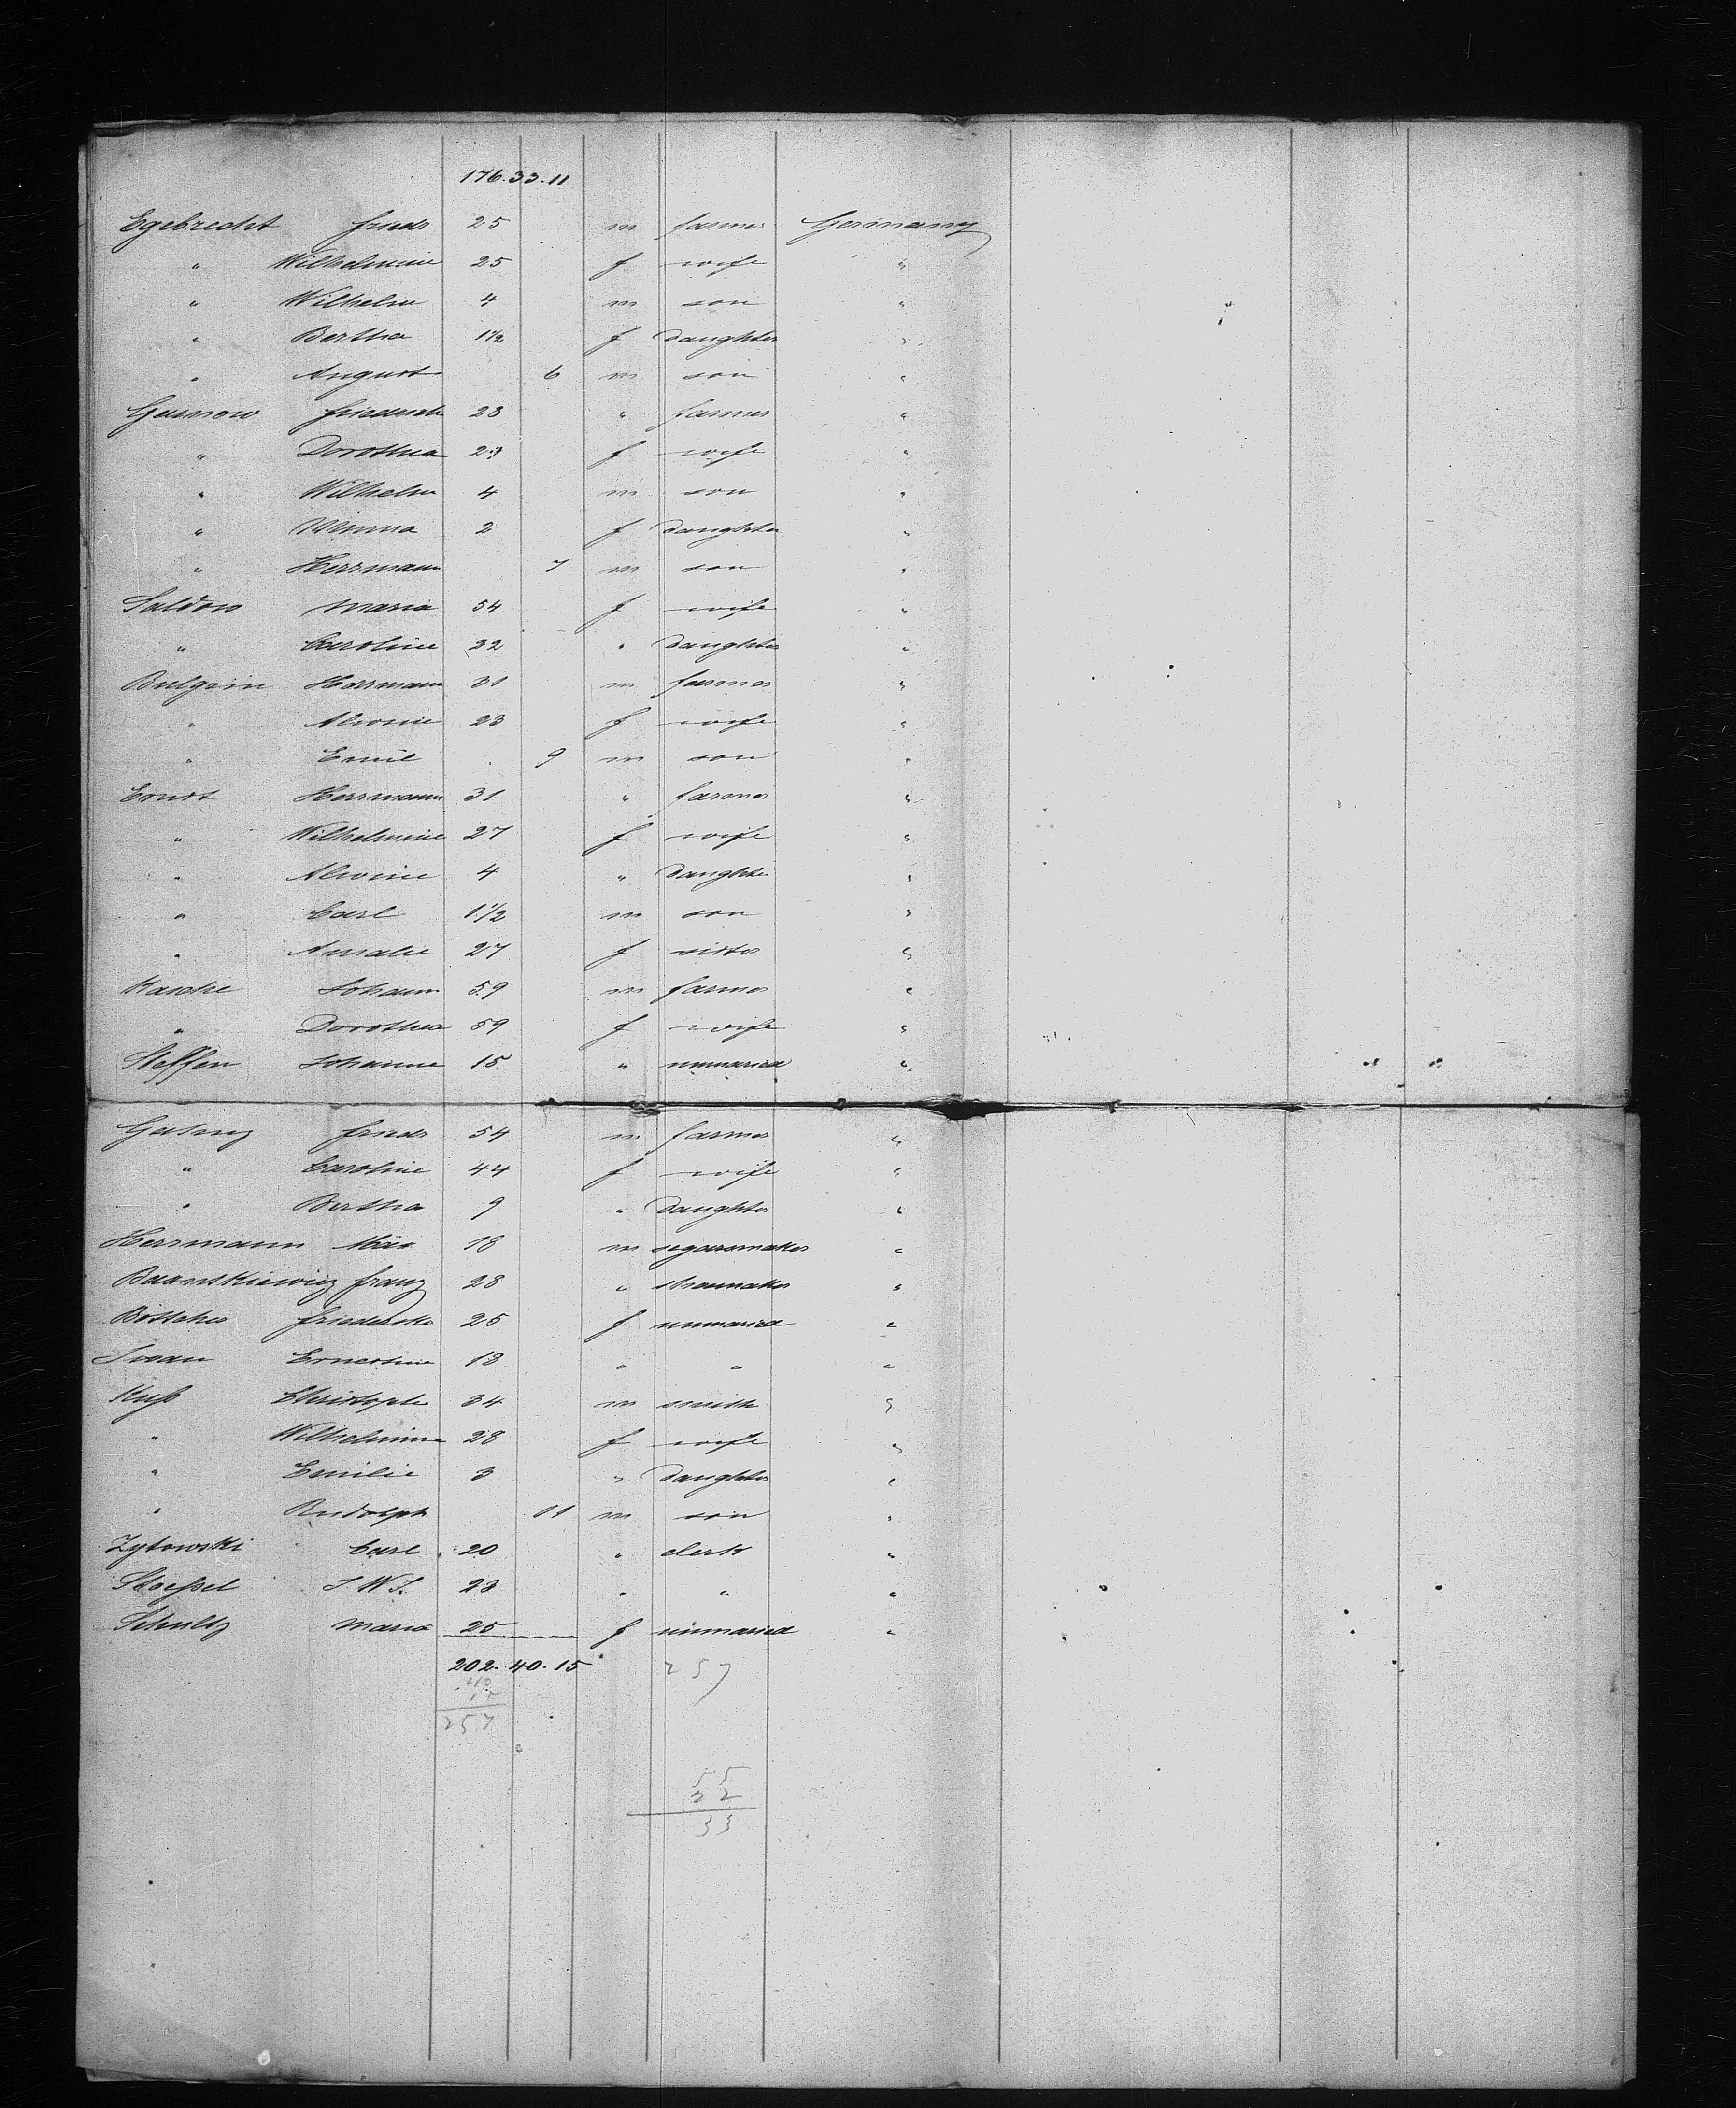 176. 33. 11
Egebrecht Friedr 25 m farmer Germany
" Wilhelmine 25 f wife "
" Wilhelm 4 m son "
" Bertha 1 1/2 f daughter "
" August 6 m son "
Friederich 28 " farmer "
" Dorothea 23 f wife "
" Wilhelm 4 m son "
" Minna 2 f daughter "
" Herrmann 7 m son "
Saldow Maria 54 f wife "
" Caroline 22 " daughter "
Bulgrin Herrmann 31 m farmer "
" Alwine 23 f wife "
" Emil 9 m son "
Erndt Herrmann 31 " farmer "
" Wilhelmine 27 f wife "
" Alwine 4 " daughter "
" Carl 1 1/2 m son "
" Amalie 27 f sister "
Kaschke Johann 59 m farmer "
" Dorothea 59 f wife "
Steffen Johanne 15 " unmaried "
Friedr 54 m farmer "
" Caroline 44 f wife "
" Bertha 9 " daughter "
Herrmann Max 18 m segarsmaker "
Franz 28 " shoemaker "
Böttcher Friedericke 25 f unmaried "
Ernestine 18 " " "
Kuß Christoph 34 m smith "
" Wilhelmine 28 f wife "
" Emilie 3 " daughter "
" Rudolph 11 m son "
Zytowski Carl 20 " clerk "
Stoeßel J. W. J. 23 " " "
Schultz Maria 25 f unmaried "
202. 40. 15 257
40
15
257
55
22
33